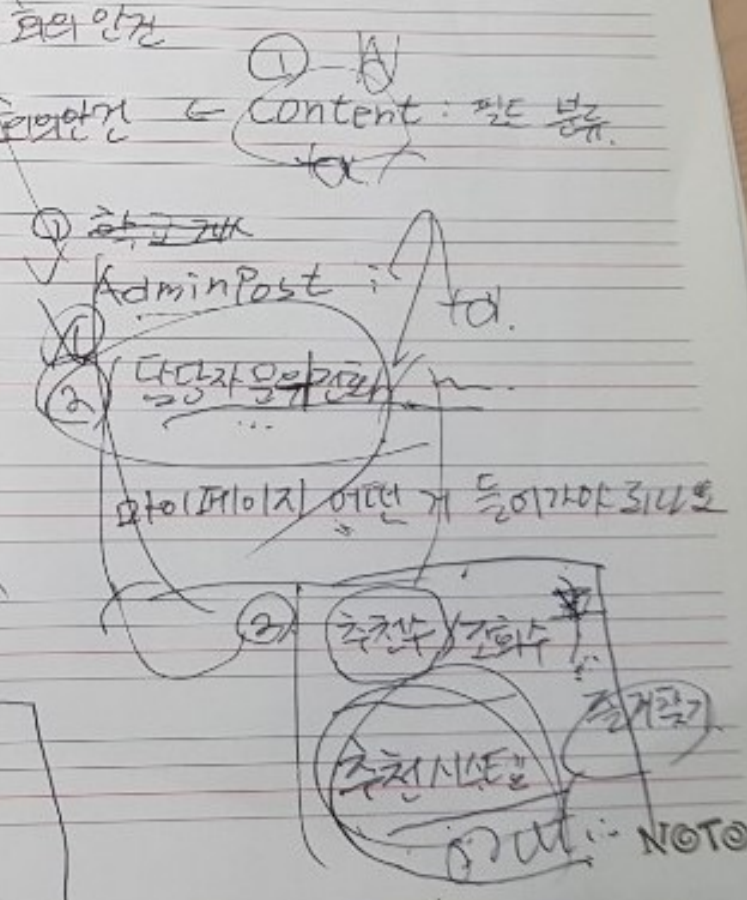 회의 안건
①
회의안건 ← Content : 필드 분류.
① 학교
AdminPost :
①
② 담당자 문의전화
...
마이페이지 어떤 게 들어가야 되나요
② 추천수 / 조회수
즐겨찾기
추천시스템
NOTO